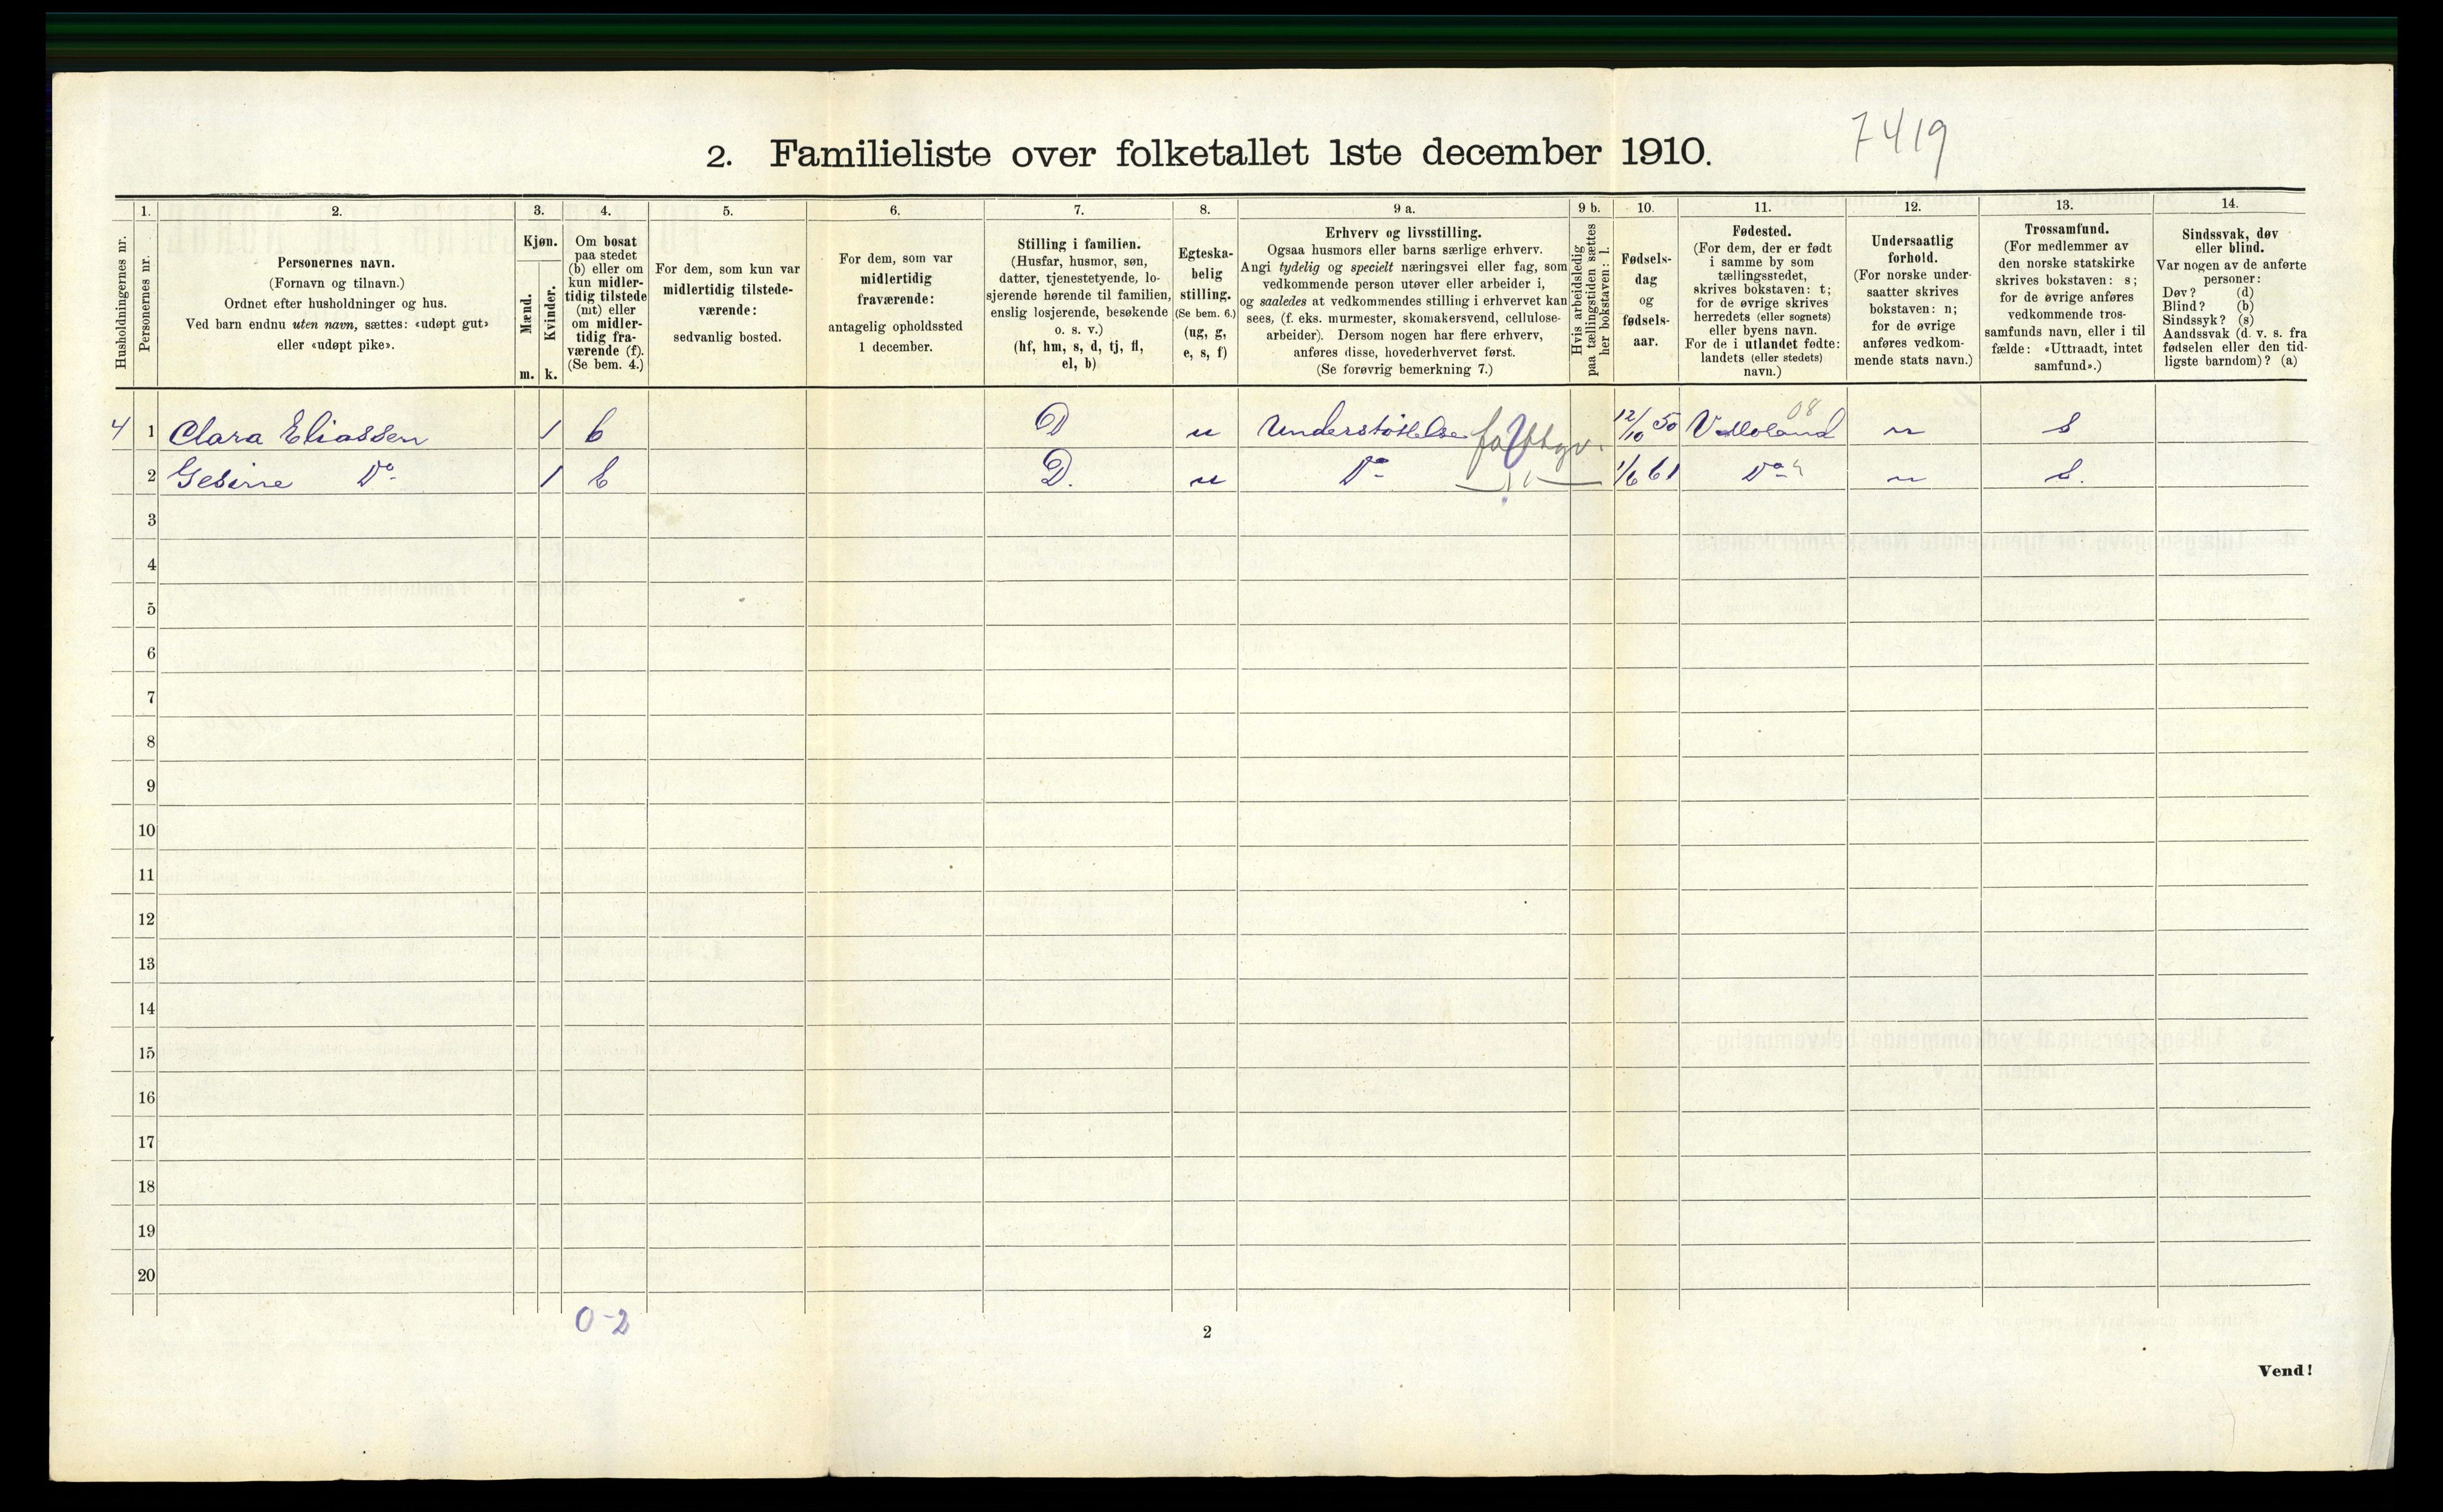 7419
2. Familieliste over folketallet 1ste december 1910.
Husholdningernes nr.
1.
Personernes nr.
2.
Personernes navn.
(Fornavn og tilnavn.)
Ordnet efter husholdninger og hus.
Ved barn endnu uten navn, sættes: «udøpt gut»
eller «udøpt pike».
3.
Kjøn.
Mænd.
m.
Kvinder.
k.
4.
Om bosat
paa stedet
(b) eller om
kun midler-
tidig tilstede
(mt) eller
om midler-
tidig fra-
værende (f).
(Se bem. 4.)
5.
For dem, som kun var
midlertidig tilstede-
værende:
sedvanlig bosted.
6.
For dem, som var
midlertidig
fraværende:
antagelig opholdssted
1 december.
7.
Stilling i familien.
(Husfar, husmor, søn,
datter, tjenestetyende, lo-
sjerende hørende til familien,
enslig losjerende, besøkende
o. s. v.)
(hf, hm, s, d, tj, fl,
el, b)
8.
Egteska-
belig
stilling.
(Se bem. 6.)
(ug, g,
e, s, f)
9 a.
Erhverv og livsstilling.
Ogsaa husmors eller barns særlige erhverv.
Angi tydelig og specielt næringsvei eller fag, som
vedkommende person utøver eller arbeider i,
og saaledes at vedkommendes stilling i erhvervet kan
sees, (f. eks. murmester, skomakersvend, cellulose-
arbeider). Dersom nogen har flere erhverv,
anføres disse, hovederhvervet først.
(Se forøvrig bemerkning 7.)
9 b.
Hvis arbeidsledig
paa tællingstiden sættes
her bokstaven: l.
10.
Fødsels-
dag
og
fødsels-
aar.
11.
Fødested.
(For dem, der er født
i samme by som
tællingsstedet,
skrives bokstaven: t;
for de øvrige skrives
herredets (eller sognets)
eller byens navn.
For de i utlandet fødte:
landets (eller stedets)
navn.)
12.
Undersaatlig
forhold.
(For norske under-
saatter skrives
bokstaven: n;
for de øvrige
anføres vedkom-
mende stats navn.)
13.
Trossamfund.
(For medlemmer av
den norske statskirke
skrives bokstaven: s;
for de øvrige anføres
vedkommende tros-
samfunds navn, eller i til
fælde: «Uttraadt, intet
samfund».)
14.
Sindssvak, døv
eller blind.
Var nogen av de anførte
personer:
Døv? (d)
Blind? (b)
Sindssyk? (s)
Aandssvak (d. v. s. fra
fødselen eller den tid-
ligste barndom)? (a)
4 1 Clara Eliassen 1 b D u Understøttelse 12/10 50 08 n s
2 Gesine Do 1 b D. u Do 1/6 61 Do n s.
3
4
5
6
7
8
9
10
11
12
13
14
15
16
17
18
19
20
0-2
2
Vend!